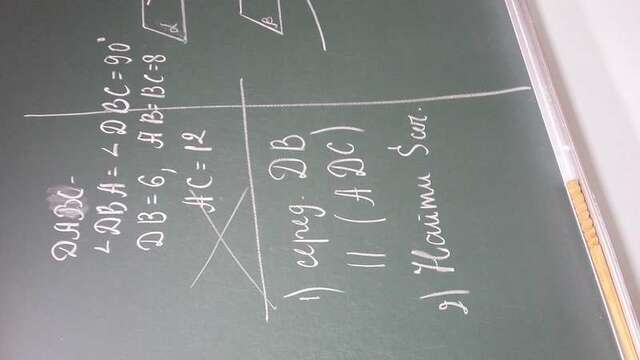 DABC -
∠DBA = ∠DBC = 90°
DB = 6, AB = BC = 8
AC = 12
1) серед. DB
|| (ADC)
2) Найти Sсеч.
α
β